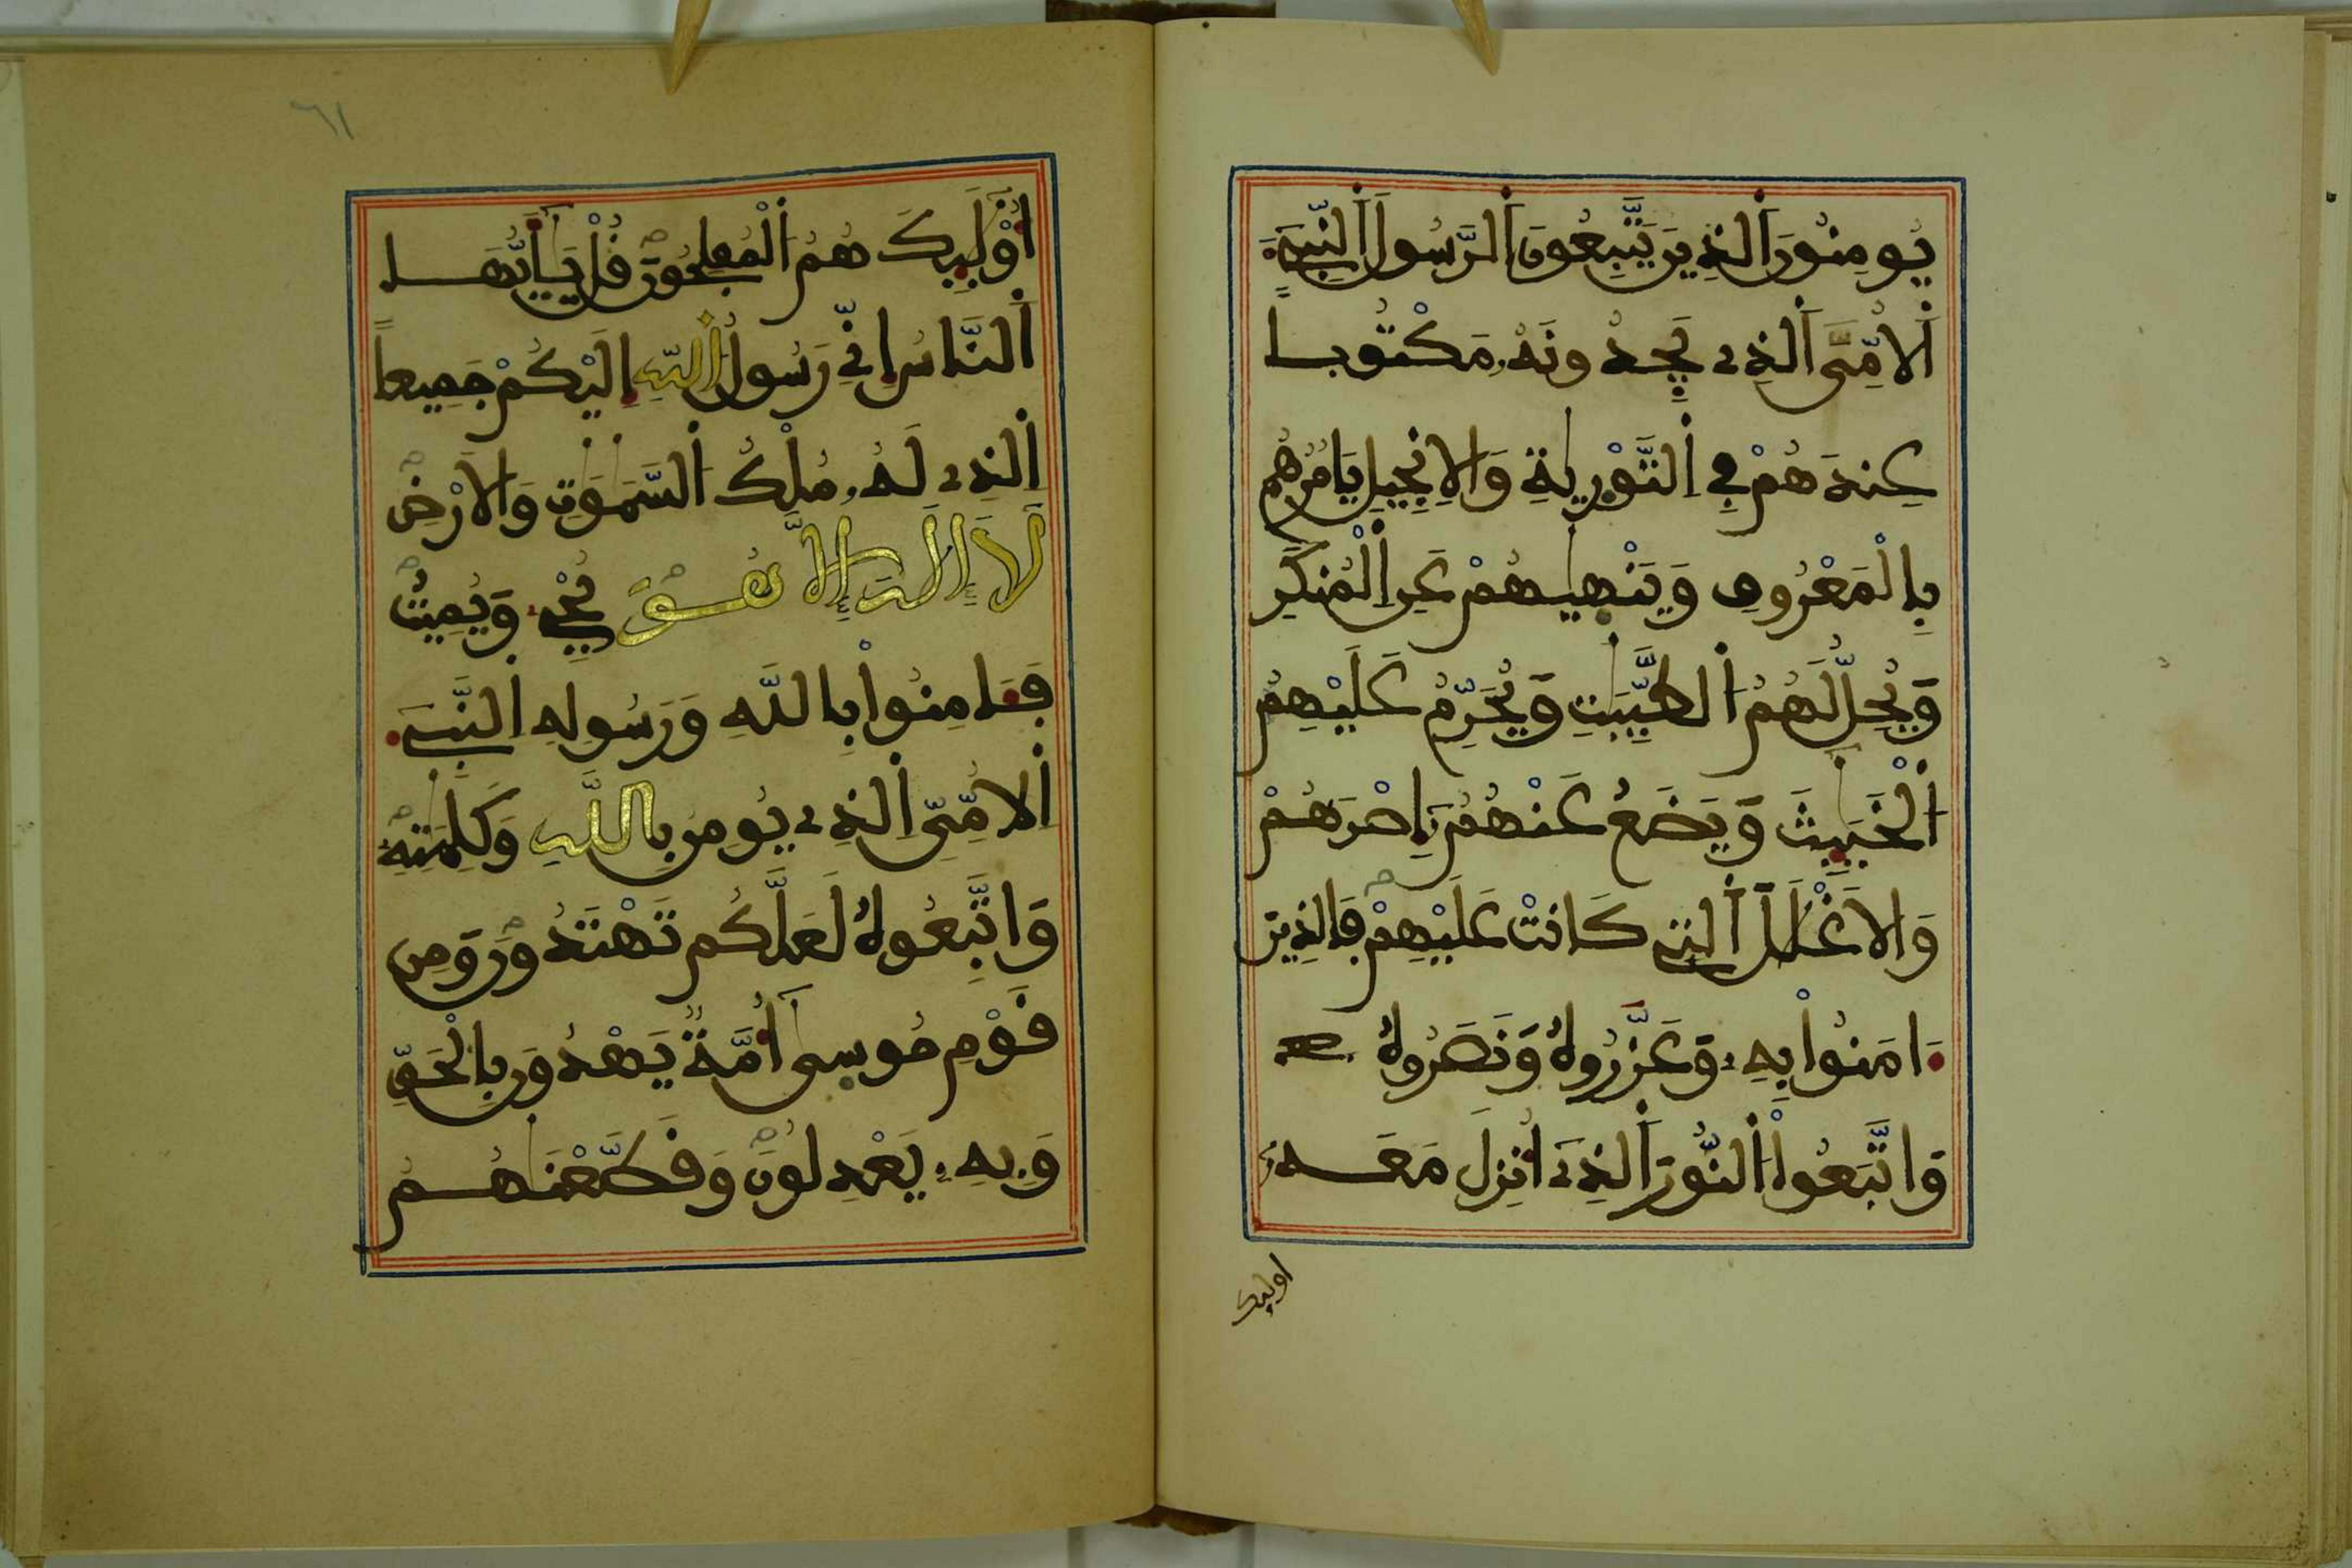 يُومِنُونَ اَلذِينَ يَتَّبِعُونَ اَلرَّسُولَ اَلنَّبِےٓءَ
اَلُامِّىَّ اَلذِے يَجِدُونَهُۥ مَكْتُوباً
عِندَهُمْ فِے اِلتَّوْرٜيٰةِ وَالِانجِيلِ يَامُرُهُم
بِالْمَعْرُوفِ وَيَنْهٜيٰهُمْ عَنِ اِلْمُنكَرِ
وَيُحِلُّ لَهُمُ اُلطَّيِّبَٰتِ وَيُحَرِّمُ عَلَيْهِمُ
اُلْخَبَٰٓئِثَ وَيَضَعُ عَنْهُمُۥٓ إِصْرَهُمْ
وَالَاغْلَٰلَ اَلتِے كَانَتْ عَلَيْهِمْ فَالذِينَ
ءَامَنُواْ بِهِۦ وَعَزَّرُوهُ وَنَصَرُوهُ
وَاتَّبَعُواْ اُلنُّورَ اَلذِےٓ أُنزِلَ مَعَهُۥٓ
اوليك
٦١
أُوْلَٰٓئِكَ هُمُ اُلْمُفْلِحُونَ قُلْ يَٰٓأَيُّهَا
اَلنَّاسُ إِنِّے رَسُولُ اُللَّهِ إِلَيْكُمْ جَمِيعاً
اِلذِے لَهُۥ مُلْكُ اُلسَّمَٰوَٰتِ وَالَارْضِ
لَآ إِلَٰهَ إِلَّا هُوَ يُحْيِۦ وَيُمِيتُ
فَـَٔامِنُواْ بِاللَّهِ وَرَسُولِهِ اِلنَّبِےٓءِ
اِلُامِّيِّ اِلذِے يُومِنُ بِاللَّهِ وَكَلِمَٰتِهِۦ
وَاتَّبِعُوهُ لَعَلَّكُمْ تَهْتَدُونَ وَمِن
قَوْمِ مُوسٜىٰٓ أُمَّةٌ يَهْدُونَ بِالْحَقِّ
وَبِهِۦ يَعْدِلُونَ وَقَطَّعْنَٰهُمُ